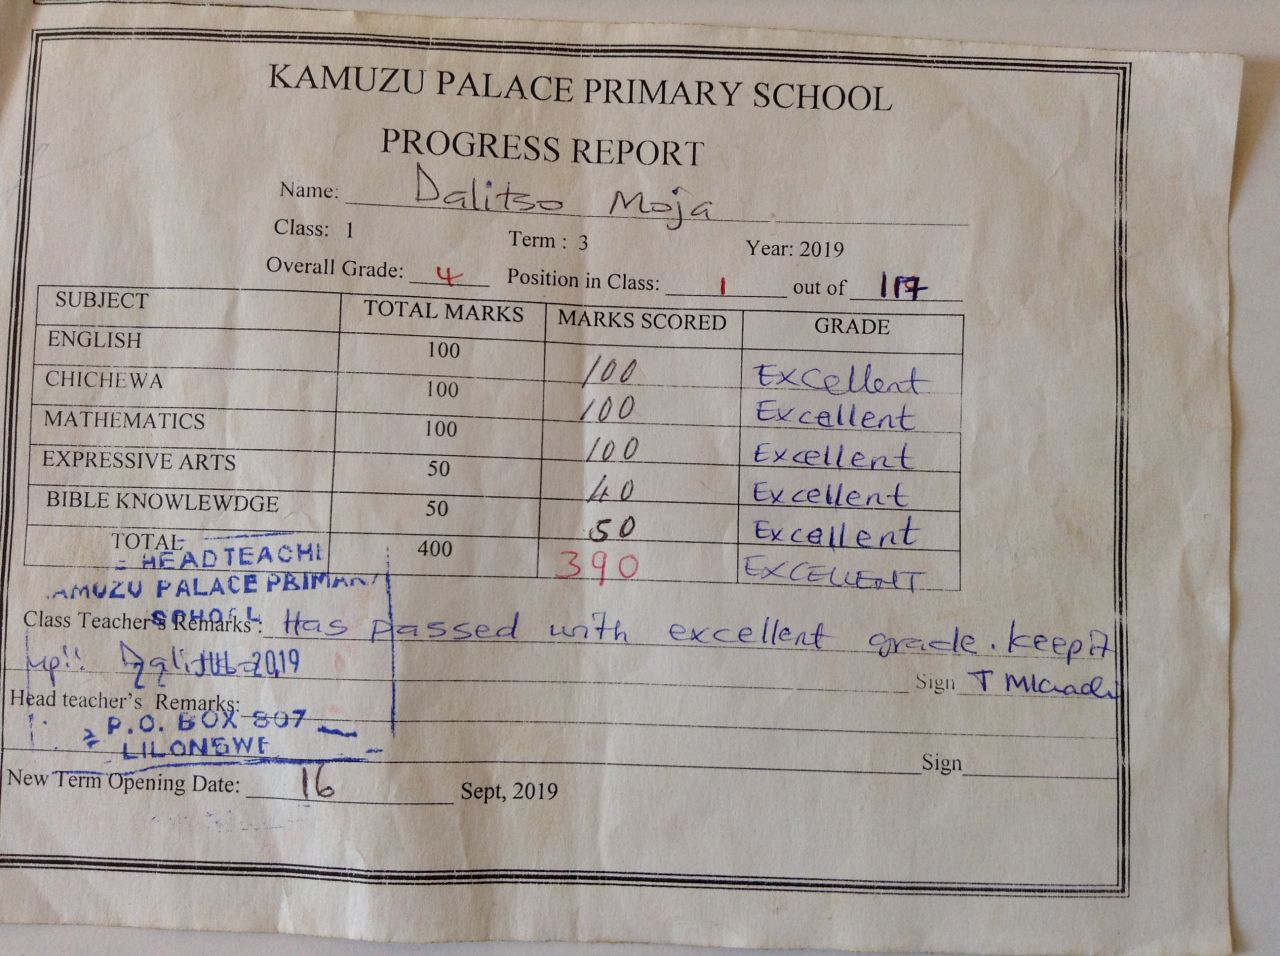 KAMUZU PALACE PRIMARY SCHOOL
PROGRESS REPORT
Name: Dalitso Moja
Class: 1 Term : 3 Year: 2019
Overall Grade: 4 Position in Class: 1 out of 117
SUBJECT TOTAL MARKS MARKS SCORED GRADE
ENGLISH 100 100 Excellent
CHICHEWA 100 100 Excellent
MATHEMATICS 100 100 Excellent
EXPRESSIVE ARTS 50 40 Excellent
BIBLE KNOWLEWDGE 50 50 Excellent
TOTAL 400 390 EXCELLENT
HEADTEACH
AMUZU PALACE PRIMAR
SCHOOL
Class Teacher's Remarks : Has passed with excellent grade. Keep it
up!! Dalitso
JUL 2019
Sign T
Head teacher's Remarks:
P.O. BOX 807
LILONGWE
Sign
New Term Opening Date: 16 Sept, 2019